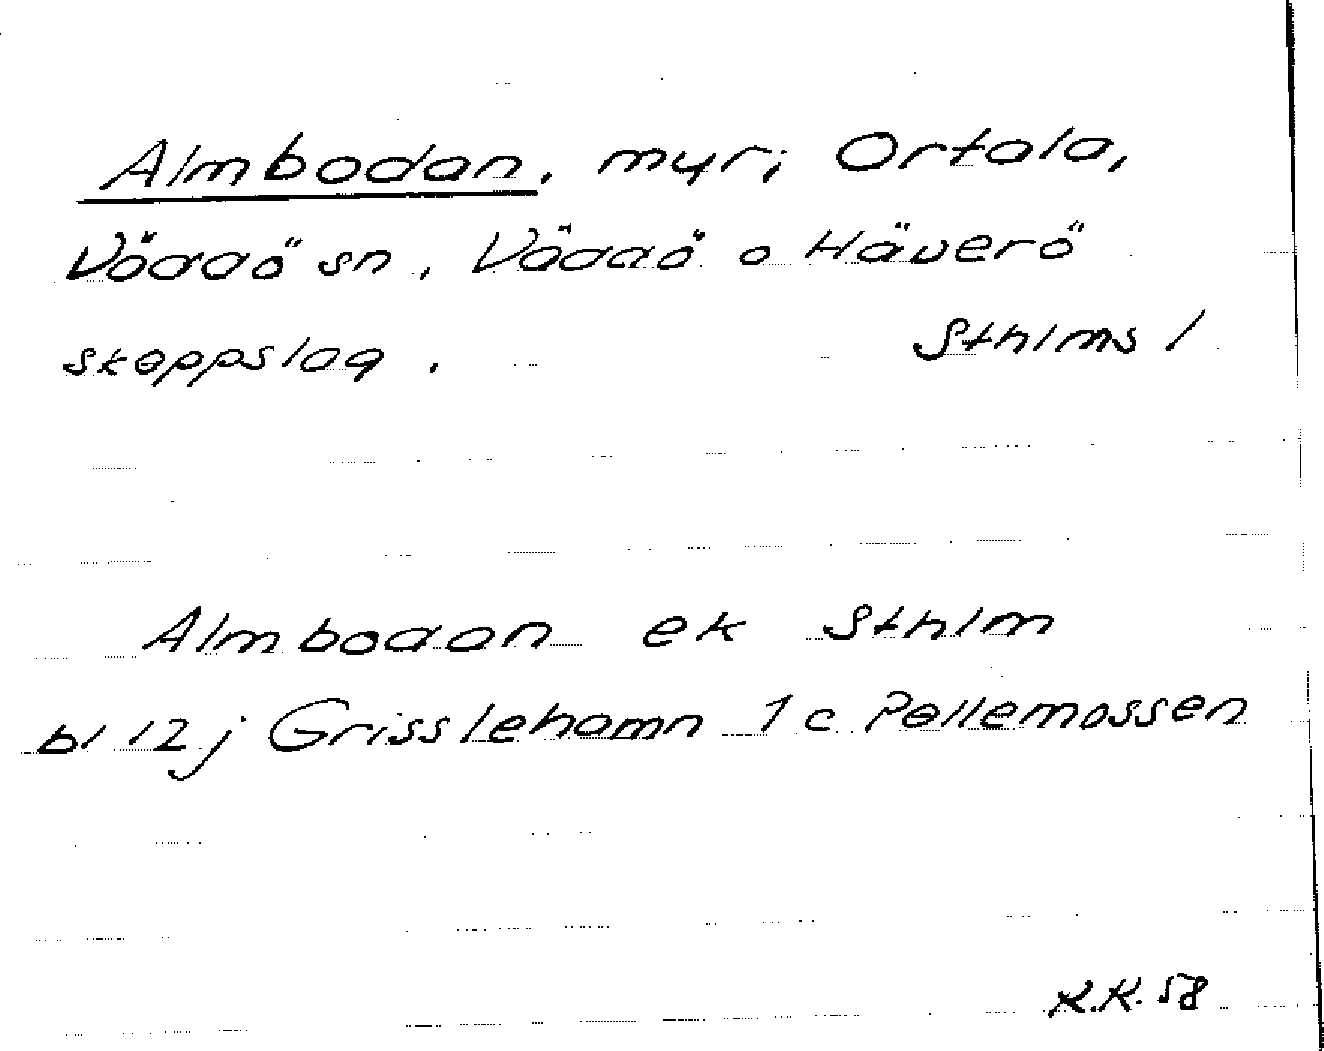 Almbodan, myr; Ortala,
Väddö sn, Väddö o Häverö
skeppslag. Sthlms l
Almbodan ek Sthlm
bl 12 j Grisslehamn 1 c Pellemossen
K.K. 58